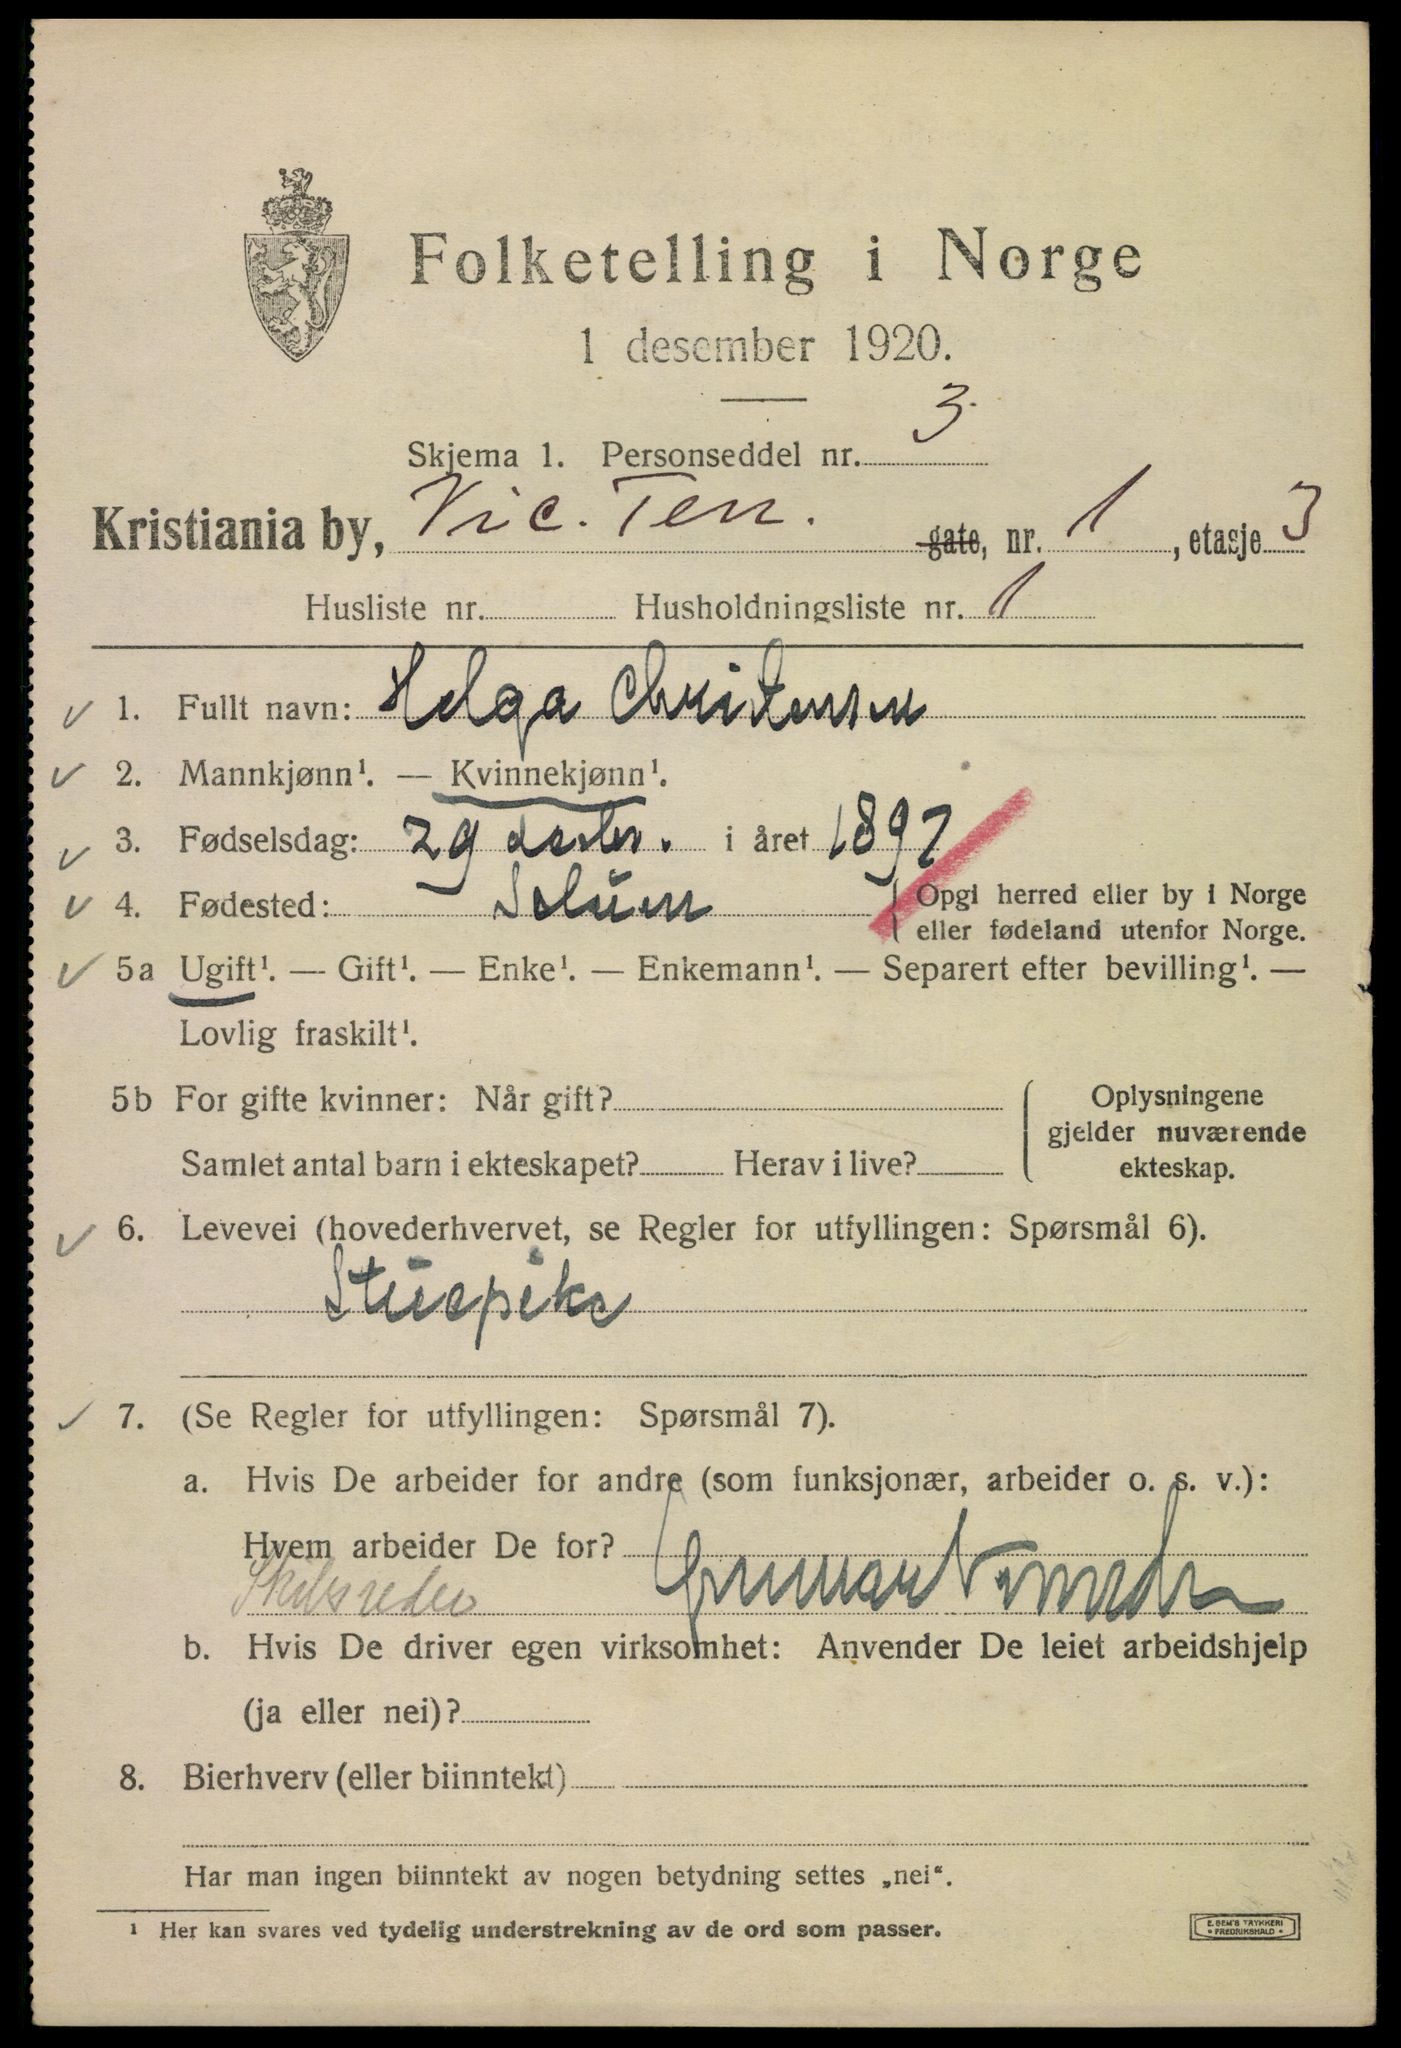 Folketelling i Norge
1 desember 1920.
Skjema 1. Personseddel nr. 3
Kristiania by, Vic. Terr. gate, nr. 1, etasje 3
Husliste nr. Husholdningsliste nr. 1
1. Fullt navn: Helga Christensen
2. Mannkjønn¹. — Kvinnekjønn¹.
3. Fødselsdag: 29 i året 1897
4. Fødested: Solum { Opgi herred eller by i Norge
eller fødeland utenfor Norge.
5a Ugift¹. — Gift¹. — Enke¹. — Enkemann¹. — Separert efter bevilling¹. —
Lovlig fraskilt¹.
5b For gifte kvinner: Når gift? { Oplysningene
gjelder nuværende
Samlet antal barn i ekteskapet? Herav i live? ekteskap.
6. Levevei (hovederhvervet, se Regler for utfyllingen: Spørsmål 6).
Stuepike
7. (Se Regler for utfyllingen: Spørsmål 7).
a. Hvis De arbeider for andre (som funksjonær, arbeider o. s. v.):
Hvem arbeider De for? Gunnar
Skibsreder
b. Hvis De driver egen virksomhet: Anvender De leiet arbeidshjelp
(ja eller nei)?
8. Bierhverv (eller biinntekt)
Har man ingen biinntekt av nogen betydning settes „nei“.
¹ Her kan svares ved tydelig understrekning av de ord som passer.
E. SEM'S TRYKKERI
• FREDRIKSHALD •